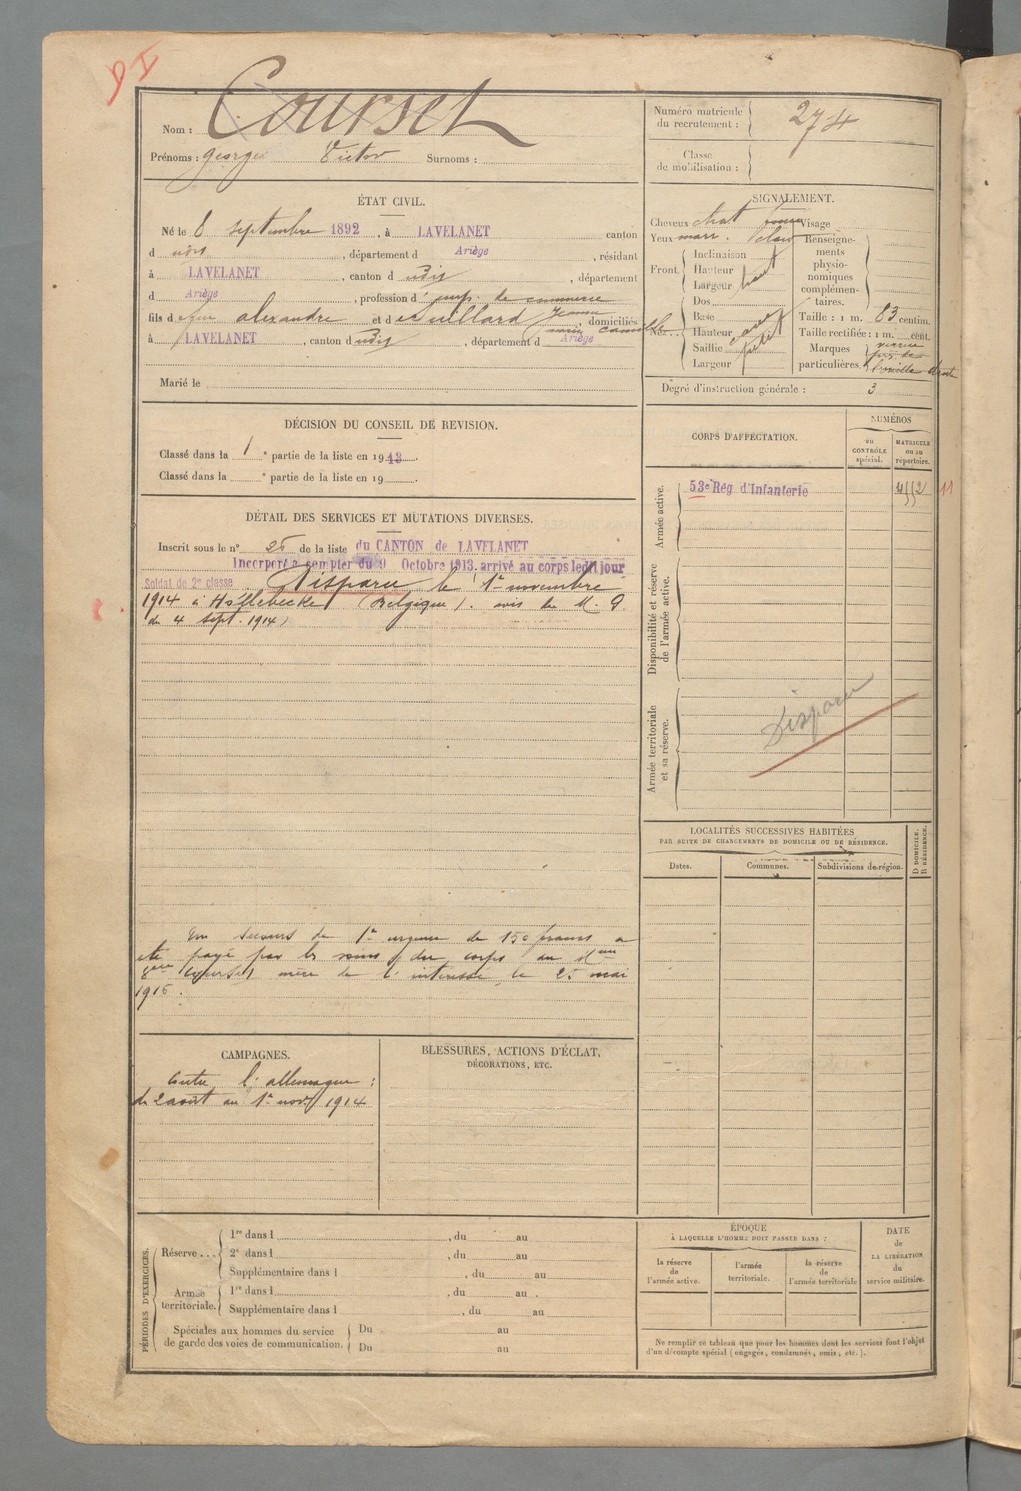 Nom : Courset
Numéro matricule du recrutement : 274
Prénoms : georges Victor Surnoms :
Classe de mobilisation :
ÉTAT CIVIL.
Né le 8 septembre 1892, à LAVELANET canton
d udit, département d Ariège, résidant
à LAVELANET, canton d udit, département
d Ariège, profession d' emp. de commerce
fils d e feu alexandre et d e Juillard Jeanne
marie Camille, domiciliés
à LAVELANET, canton d udit, département d Ariège
Marié le
SIGNALEMENT.
Cheveux chat
Yeux marr.
Front. Inclinaison
Hauteur haut
Largeur
Nez. Dos
Base
Hauteur
Saillie
Largeur
Visage
Renseignements physionomiques complémentaires.
Taille : 1 m. 63 centim.
Taille rectifiée : 1 m. cent.
Marques particulières.
droite
Degré d'instruction générale : 3
DÉCISION DU CONSEIL DE REVISION.
Classé dans la 1e partie de la liste en 1913.
Classé dans la e partie de la liste en 19
DÉTAIL DES SERVICES ET MUTATIONS DIVERSES.
Inscrit sous le n° 25 de la liste du CANTON de LAVELANET
Incorporé à compter du 9 Octobre 1913. arrivé au corps ledit jour
Soldat de 2e classe Disparu le 1er novembre
1914 à Hollebecke (Belgique). avis du M. G
du 4 sept. 1914)
Un secours de 1re urgence de 150 francs a
été payé par les soins du corps au
Courset mère de l'intéressé, le 25 mai
1916.
CORPS D'AFFECTATION.
NUMÉROS
au CONTRÔLE spécial.
MATRICULE ou au répertoire.
Armée active.
53e Rég d'Infanterie
11
Disponibilité et réserve de l'armée active.
Armée territoriale et sa réserve.
Disparu
LOCALITÉS SUCCESSIVES HABITÉES
PAR SUITE DE CHANGEMENTS DE DOMICILE OU DE RÉSIDENCE.
Dates.
Communes.
Subdivisions de région.
D DOMICILE.
R RÉSIDENCE.
CAMPAGNES.
Contre l'allemagne :
du 2 août au 1er nov. 1914
BLESSURES, ACTIONS D'ÉCLAT,
DÉCORATIONS, ETC.
PÉRIODES D'EXERCICES.
Réserve... 1re dans l , du au
2e dans l , du au
Supplémentaire dans l , du au
Armée territoriale. 1re dans l , du au
Supplémentaire dans l , du au
Spéciales aux hommes du service de garde des voies de communication. Du au
Du au
ÉPOQUE
À LAQUELLE L'HOMME DOIT PASSER DANS :
la réserve de l'armée active.
l'armée territoriale.
la réserve de l'armée territoriale
DATE de LA LIBÉRATION du service militaire.
Ne remplir ce tableau que pour les hommes dont les services font l'objet
d'un décompte spécial (engagés, condamnés, omis, etc.).